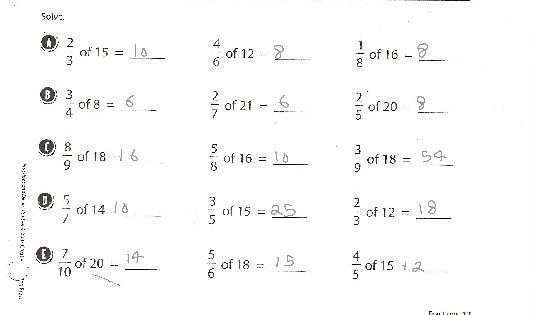 Solve.
A 2/3 of 15 = 10 4/6 of 12 = 8 1/8 of 16 = 8
B 3/4 of 8 = 6 2/7 of 21 = 6 2/5 of 20 = 8
C 8/9 of 18 16 5/8 of 16 = 10 3/9 of 18 = 54
D 5/7 of 14 10 3/5 of 15 = 25 2/3 of 12 = 18
E 7/10 of 20 = 14 5/6 of 18 = 15 4/5 of 15 12